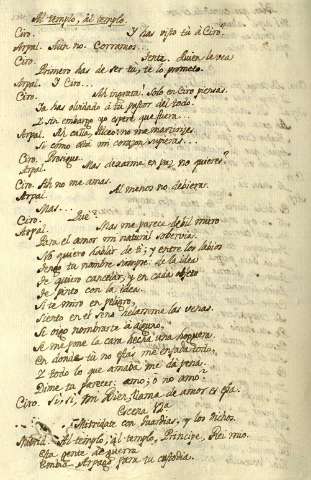 Al templo, al templo.
Ciro. Y has visto tu à Ciro?
Arpal. Aun no. Corramos...
Ciro. Tente. Quien le vea
Primero has de ser tu, te lo prometo.
Arpal. Y Ciro...
Ciro. Ah ingrata! Solo en Ciro piensas.
Ya has olvidado à tu pastor del todo.
Y sin embargo yo esperé que fuera...
Arpal. Ah calla, Alceo: no me martirizes.
Si como està mi corazon supieras...
Ciro. Prosigue.
Arpal. Mas dexarme en paz no quieres?
Ciro. Ah no me amas.
Arpal. Al menos no debiera.
Mas...
Ciro. Què?
Arpal. Mas me parece debil muro
Para el amor mi natural sobervia.
No quiero hablar de ti; y entre los labios
siento tu nombre siempre: de la idea
te quiero cancelar, y en cada objeto
te pinto con la idea.
Si te miro en peligro,
siento en el seno helarseme las venas.
Si oigo nombrarte à alguno,
Se me pone la cara hecha una hoguera.
En donde tu no estas me enfada todo,
Y todo lo que amaba me dá pena.
Dime tu parecer: amo; o no amo?
Ciro. Si, si, mi Bien, llama de amor es esa.
Escena 12ª
Mitridate con Guardias, y los dichos.
Mitrid. Al templo, al templo, Principe, Rei mio.
Esta gente de guerra
Embia Arpago para tu custodia.